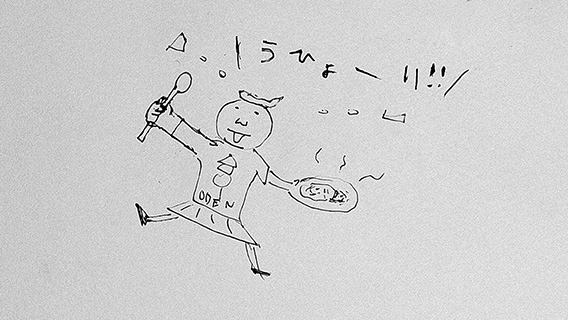 うひょーり!!
ODEN